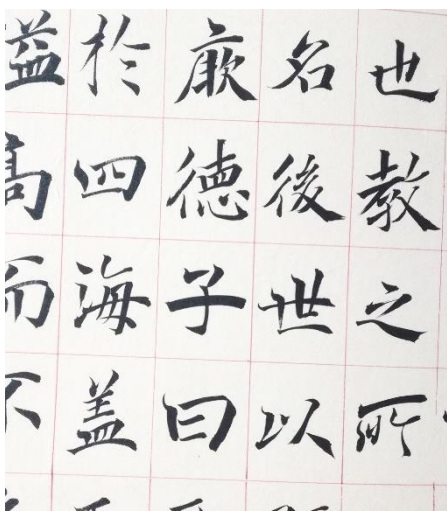 也教之所
名後世以
厥德子曰
於四海盖
溢高而不